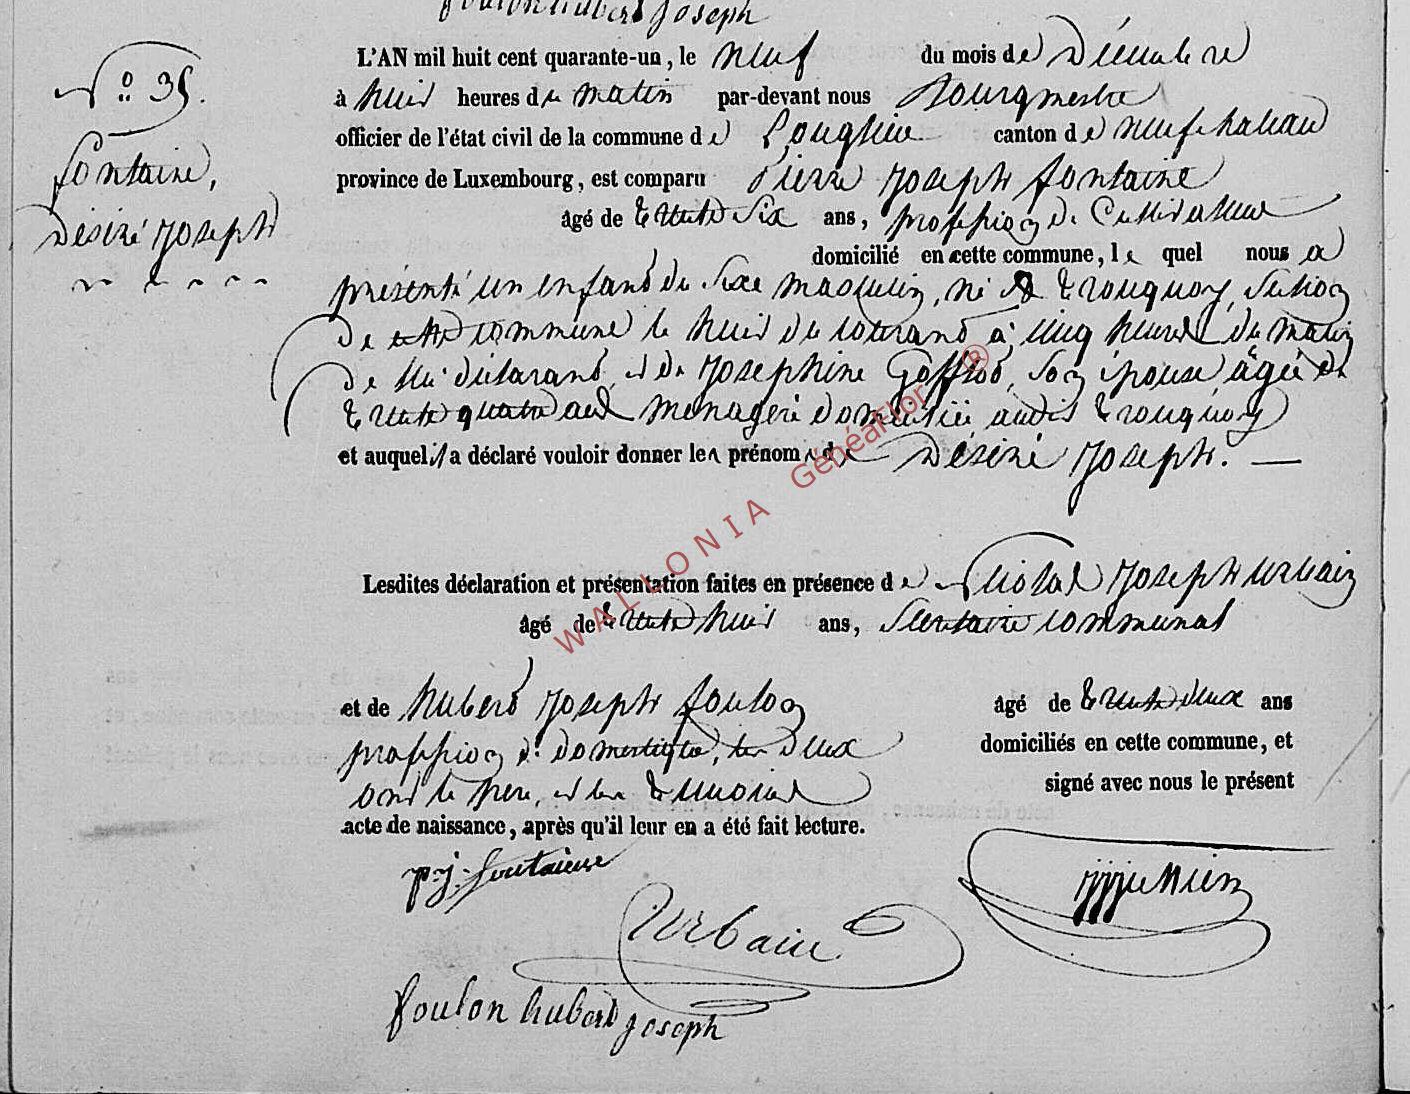 foulon hubert joseph
N.º 35.
fontaine,
Désiré Joseph
L'AN mil huit cent quarante-un, le neuf du mois de Décembre
à huit heures du matin par-devant nous Bourgmestre
officier de l'état civil de la commune de Longlier canton de neufchateau
province de Luxembourg, est comparu Pierre Joseph fontaine
âgé de trente Six ans, profession de Cultivateur
domicilié en cette commune, le quel nous a
présenté un enfant du Sexe masculin, né à tronquoy, Section
de cette commune le huit du courant à cinq heures du matin
de lui déclarant, et de Josephine Goffinet, Son épouse, âgée de
trente quatre ans menagere domiciliée audit tronquoy
et auquel il a déclaré vouloir donner les prénoms de Désiré Joseph.
Lesdites déclaration et présentation faites en présence de Nicolas Joseph urbain
âgé de trente huit ans, Secretaire communal
et de hubert Joseph foulon âgé de trente deux ans
profession de domestique, tous deux domiciliés en cette commune, et
ont le pere, et les temoins signé avec nous le présent
acte de naissance, après qu'il leur en a été fait lecture.
p. j. fontaine
Urbain
foulon hubert joseph
WALLONIA GénéaFlor ®